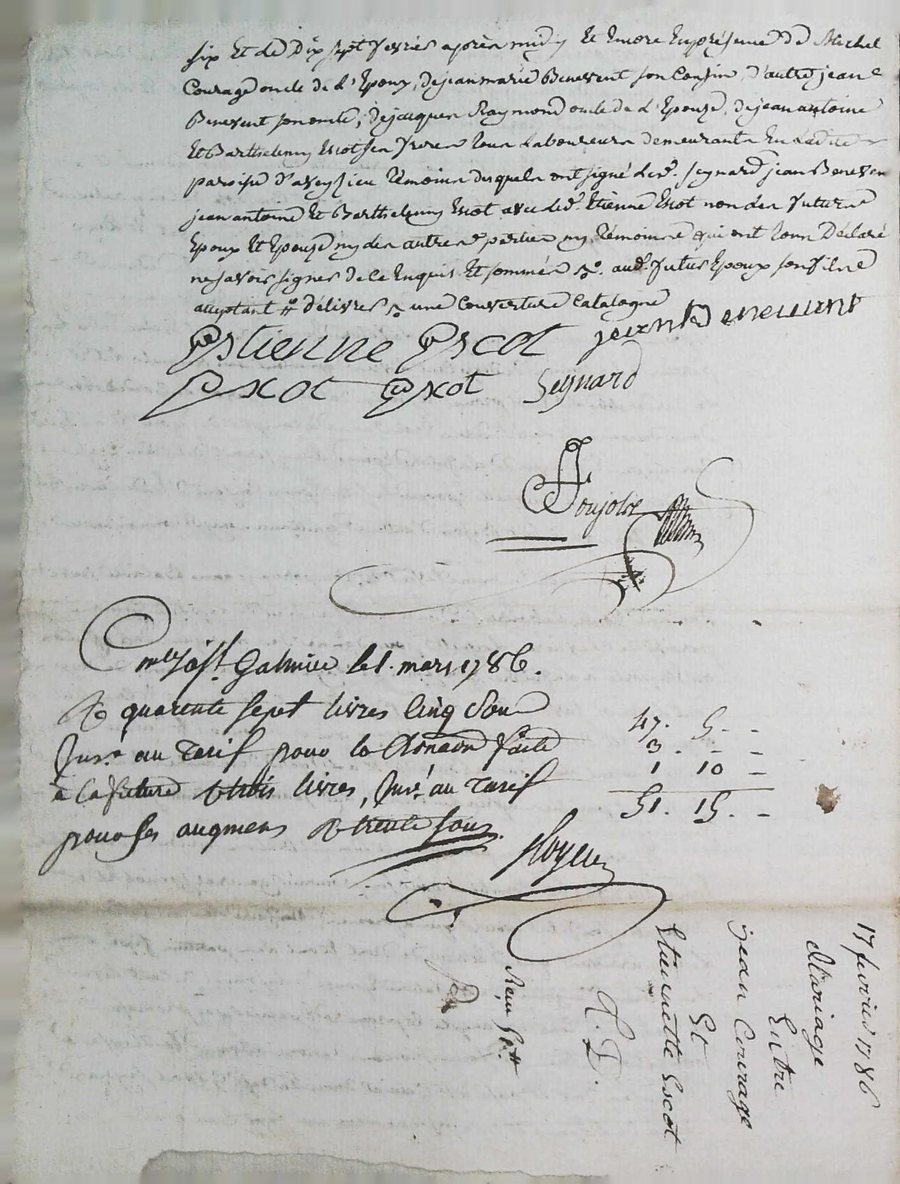 six Et de Dix sept fevrier après midy Et Encore En présence de Michel
Courage oncle de l'Epoux, de jean marie Benevent son Cousin, d'autre jean
Benevent son oncle, de jacques Raymond oncle de l'Epouse, de jean antoine
Et Barthelemy Escot ses freres tous Laboureurs demeurants En Ladite
paroisse d'aveyzieu témoins desquels ont signé led. Seynard jean Beneven
jean antoine Et Barthelemy Escot avec led. Etienne Escot non les futurs
Epoux Et Epouse ny les autres parties ny témoins qui ont tous Déclaré
ne savoir signer de ce Enquis Et sommés aud. futur Epoux son fils
acceptant délivrés une Couverture Catalogne
Estienne Escot jean Benevent
Escot Escot Seynard
Coujolle
a St Galmier le 1. mars 1786.
R quarente sept livres Cinq Sou
Suiv. au tarif pour la donaon faite
a la future trois livres, Suiv. au tarif
pour les augmens & trente sous.
47. 5. - -
3. - -
1 10 -
51. 15. - -
17 fevrier 1786
Mariage
Entre
jean Courage
Et
Etiennette Escot